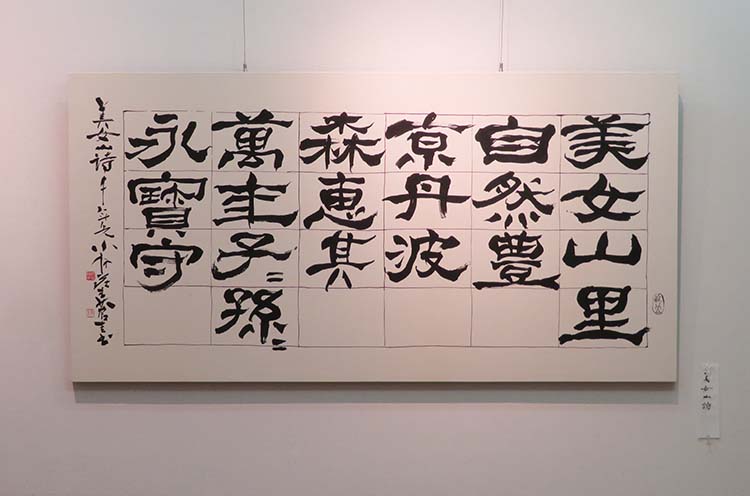 美女山里
自然豊
京丹波
森恵其
萬年子〻孫〻
永寶守
美女山詩
美女山詩